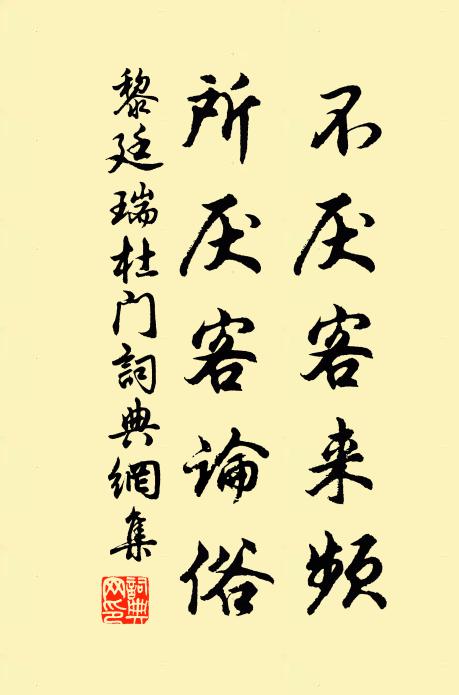 不厌客来频
所厌客论俗
黎廷瑞杜门詞典網集
詞典网印